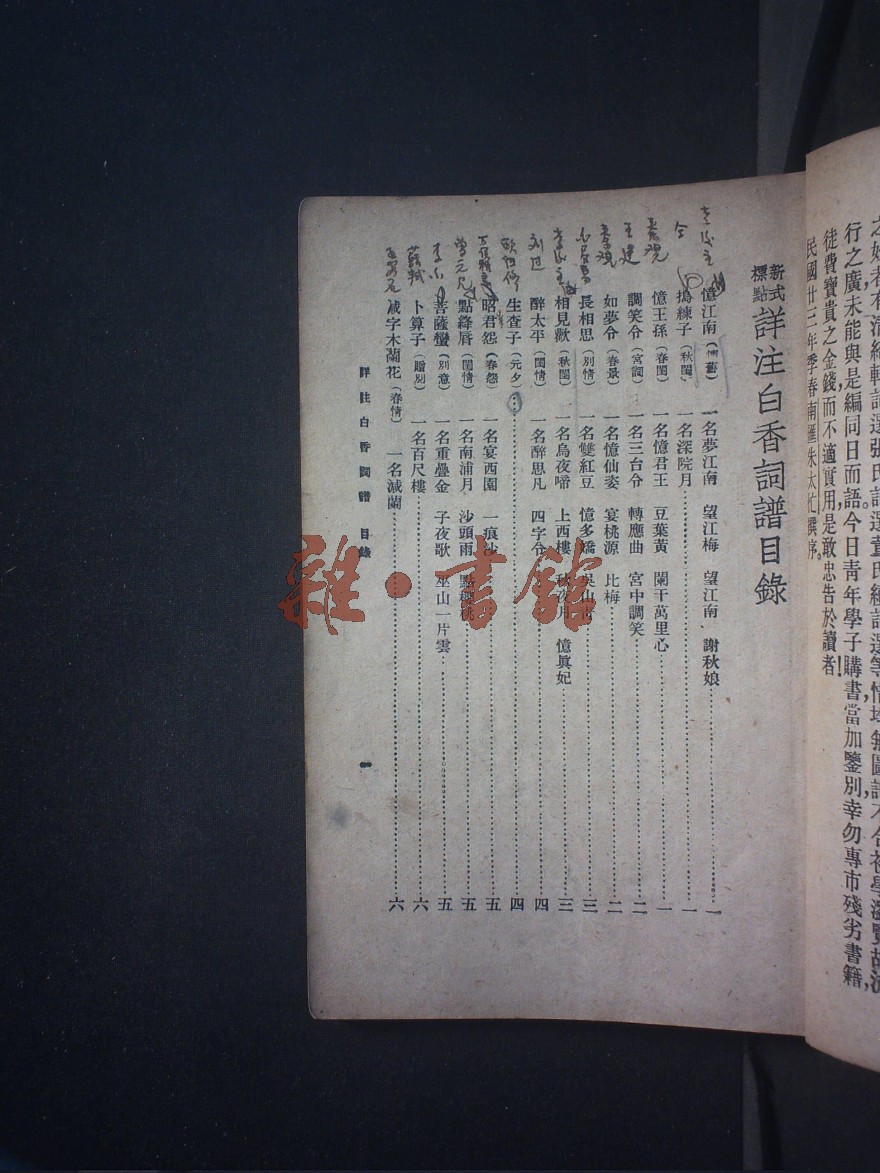 行之廣未能與是編同日而語今日青年學子購書當加鑒別幸勿專市殘劣書籍,
徒費寶貴之金錢而不適實用是敢忠告於讀者!
民國廿三年季春南匯朱太忙撰序。
新式標點 詳注白香詞譜目錄
憶江南 一名夢江南 望江梅 望江南、謝秋娘 一
搗練子(秋閨) 一名深院月 一
憶王孫(春閨) 一名憶君王 豆葉黃 闌干萬里心 一
調笑令(宮詞) 一名三台令 轉應曲 宮中調笑 二
如夢令(春景) 一名憶仙姿 宴桃源 比梅 二
長相思(別情) 一名雙紅豆 憶多嬌 吳山青 三
相見歡(秋閨) 一名烏夜啼 上西樓 秋夜月 憶眞妃 三
醉太平(閨情) 一名醉思凡 四字令 四
生查子(元夕) 四
昭君怨(春怨) 一名宴西園 一痕沙 五
點絳唇(閨情) 一名南浦月 沙頭雨 點櫻桃 五
菩薩蠻(別意) 一名重疊金 子夜歌 巫山一片雲 五
卜算子(贈別) 一名百尺樓 六
減字木蘭花(春情) 一名減蘭 六
詳註白香詞譜 目錄 一
李後主
仝
秦觀
王建
秦觀
白居易
李後主
刘过
歐陽修
万俟雅言
曾允元
李白
蘇軾
雜·書館